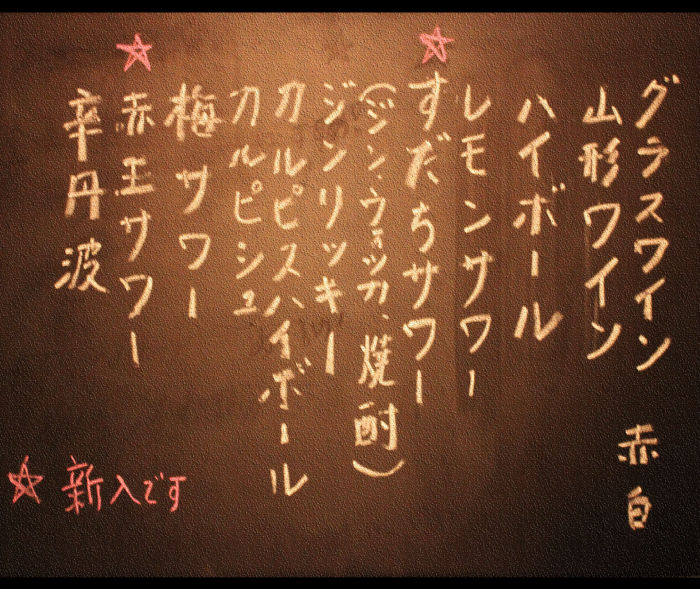 グラスワイン 赤 白
山形ワイン
ハイボール
レモンサワー
☆すだちサワー
(ジン・ウォッカ、焼酎)
ジンリッキー
カルピスハイボール
カルピシュ
梅サワー
☆赤玉サワー
辛丹波
☆新入です